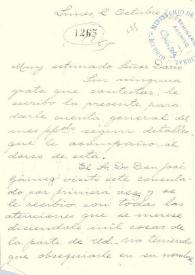 Lunes 2 Octubre
1265
MINISTERIO DE
Muy estimado
Sin ninguna
grata que contestar, le
escribo la presente para
darle cuenta general del
mes ppdo. según detalles
que le acompaño al
dorso de esta.
El Sr. Dn. José
Gámez visitó este consula-
do por primera vez y se
le recibió con todas las
atenciones que se merece
diciéndole mil cosas de
la parte de Ud. no teniendo
que obsequiarle en su nombre